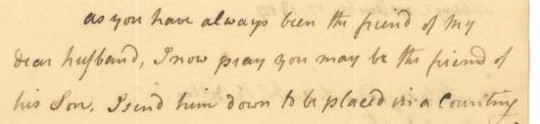 as you have always been the friend of my
dear husband, I now pray you may be the friend of
his Son. I send him down to be placed in a Counting